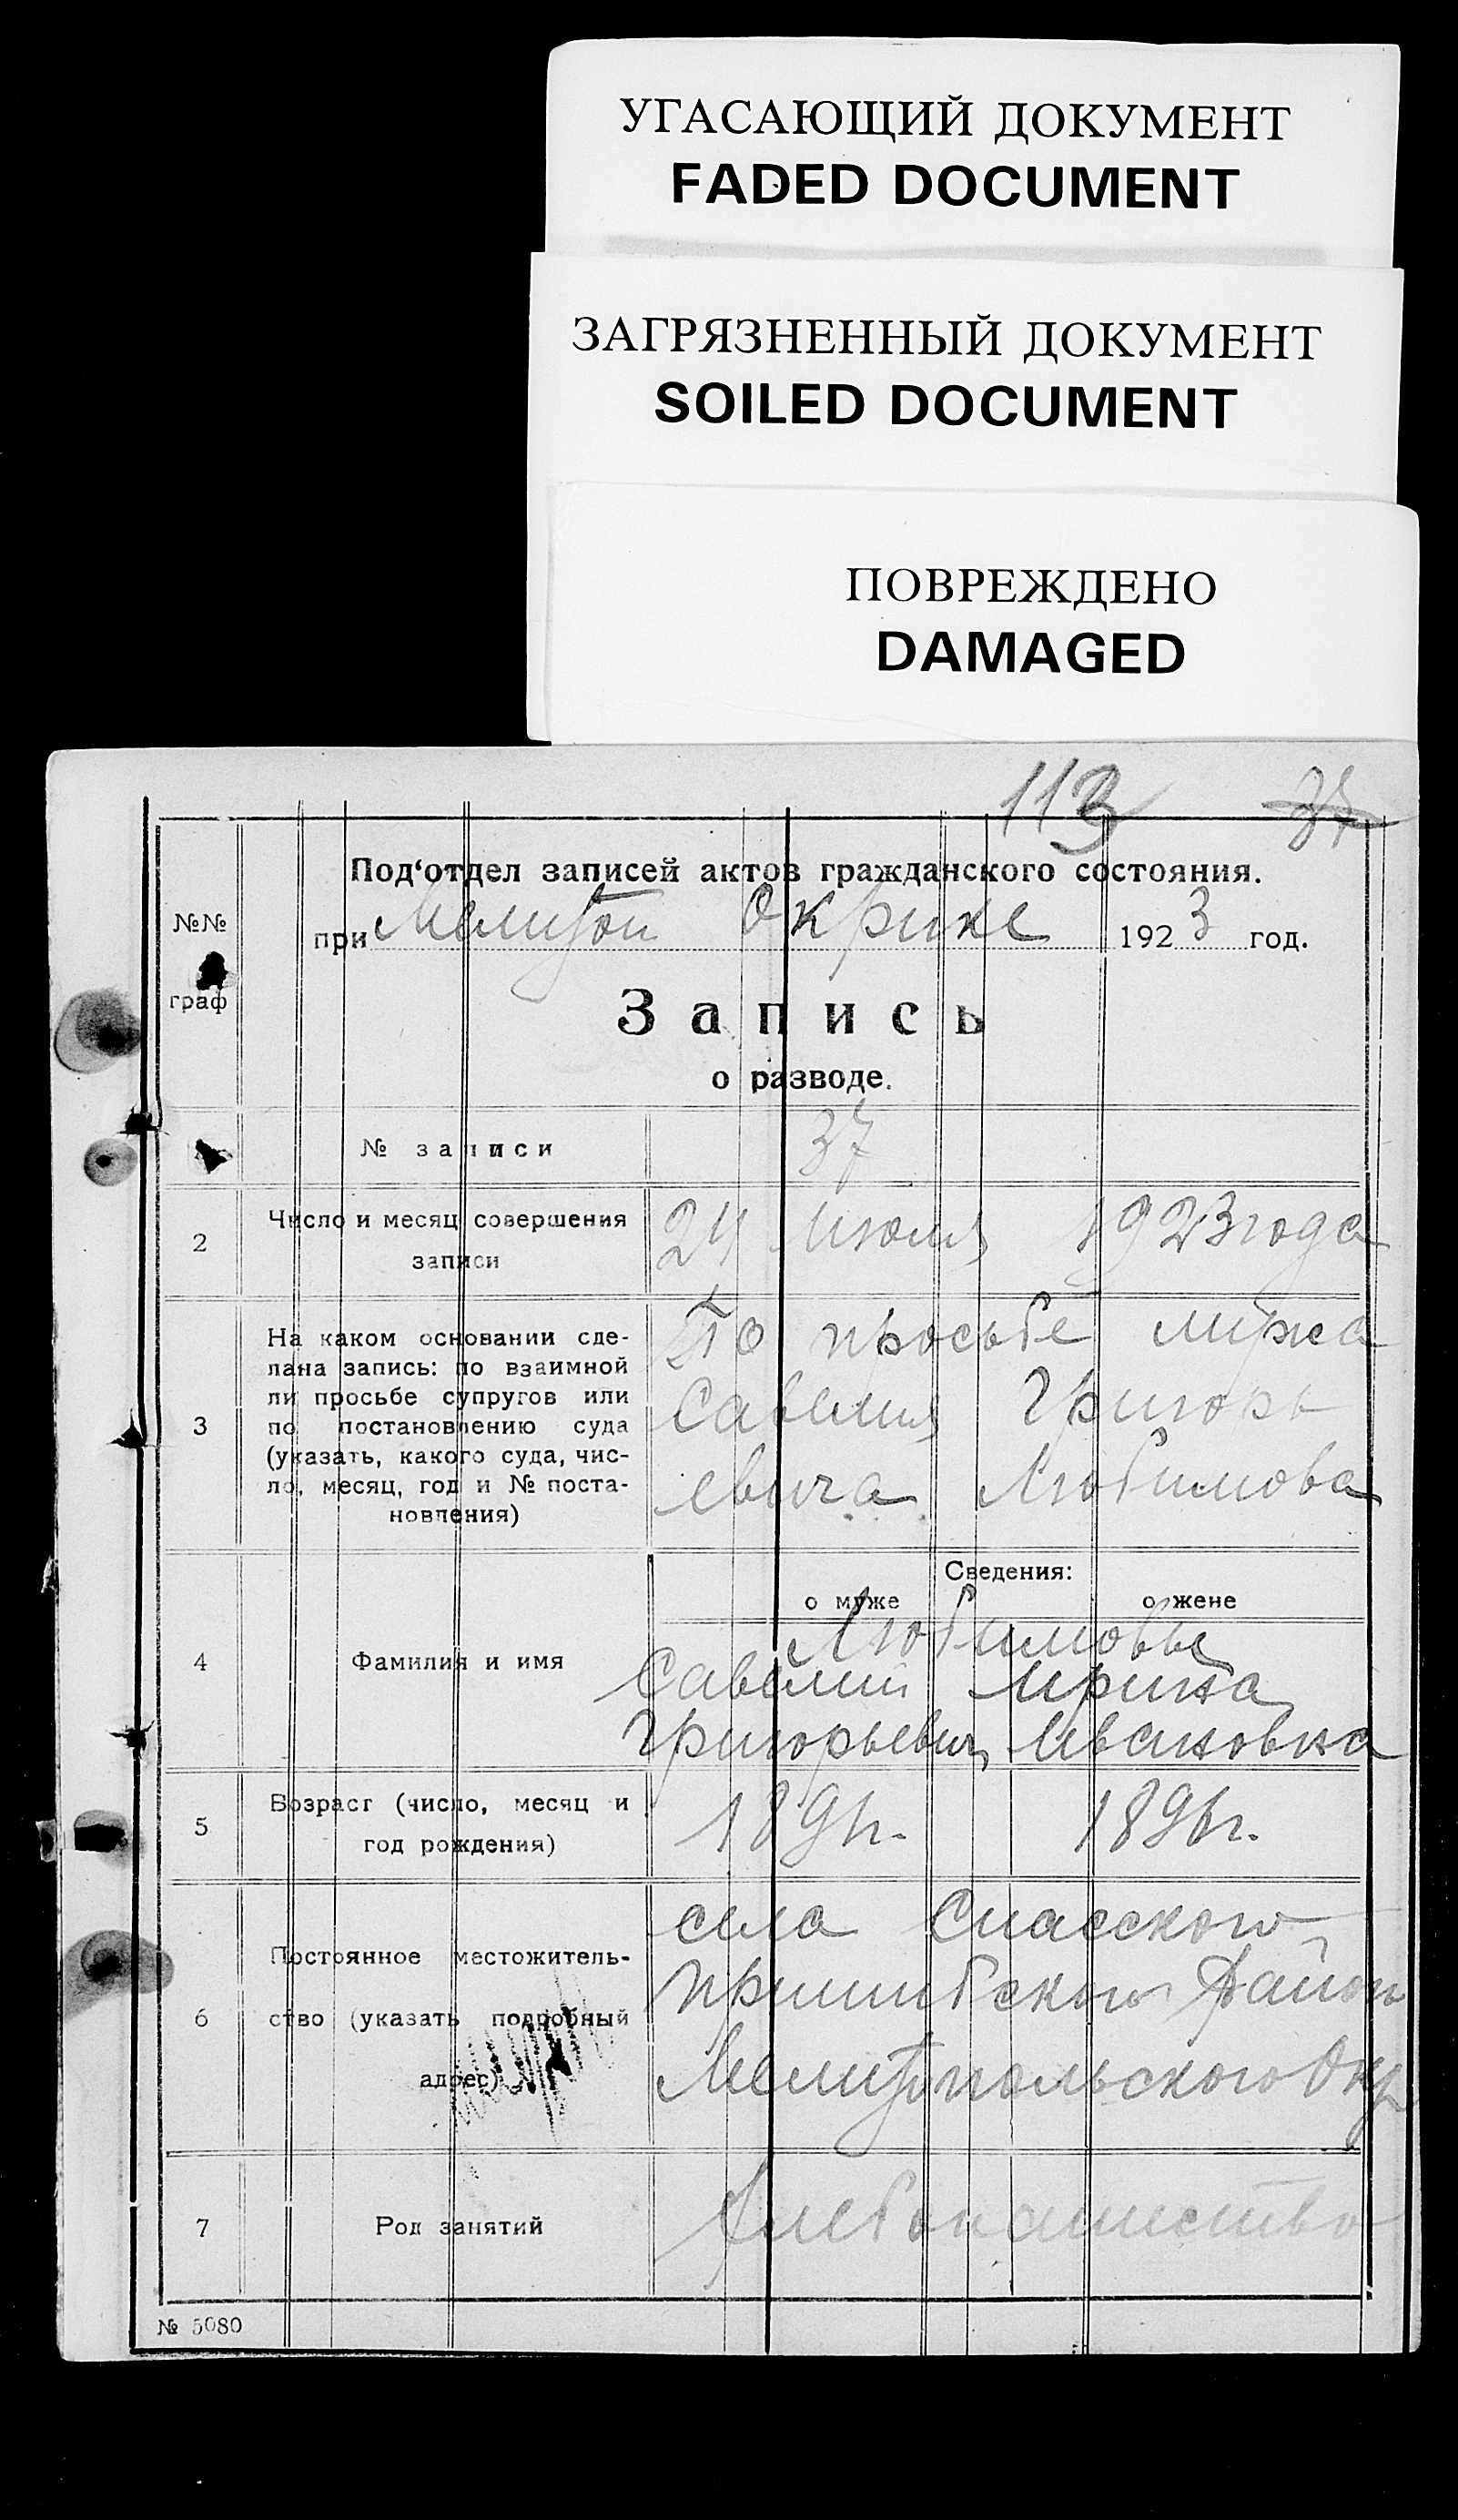 УГАСАЮЩИЙ ДОКУМЕНТ
FADED DOCUMENT
ЗАГРЯЗНЕННЫЙ ДОКУМЕНТ
SOILED DOCUMENT
ПОВРЕЖДЕНО
DAMAGED
113 37
Под‘отдел записей актов гражданского состояния.
№№
граф
при Мелитоп Окрике 1923 год.
Запись
о разводе.
№ записи 37
2 Число и месяц совершения
записи
24 Июля 1923 года
3 На каком основании сде-
лана запись: по взаимной
ли просьбе супругов или
по постановлению суда
(указать, какого суда, чис-
ло, месяц, год и № поста-
новления)
По просьбе мужа
Савелия Григорь
евича Любимова
Сведения:
о муже о жене
4 Фамилия и имя
Любимовы
Савелий Ирина
Григорьевич Ивановна
5 Возраст (число, месяц и
год рождения)
1891г. 1896г.
6 Постоянное местожитель-
ство (указать подробный
адрес)
села Спасского
Пришибского Район
Мелитопольского Окр
7 Род занятий Хлебопашество
№ 5080